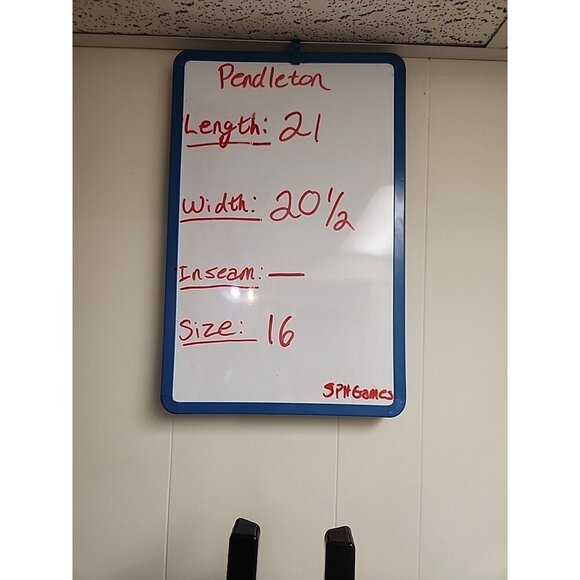 Pendleton
Length: 21
Width: 20 1/2
Inseam: —
Size: 16
SPH Games